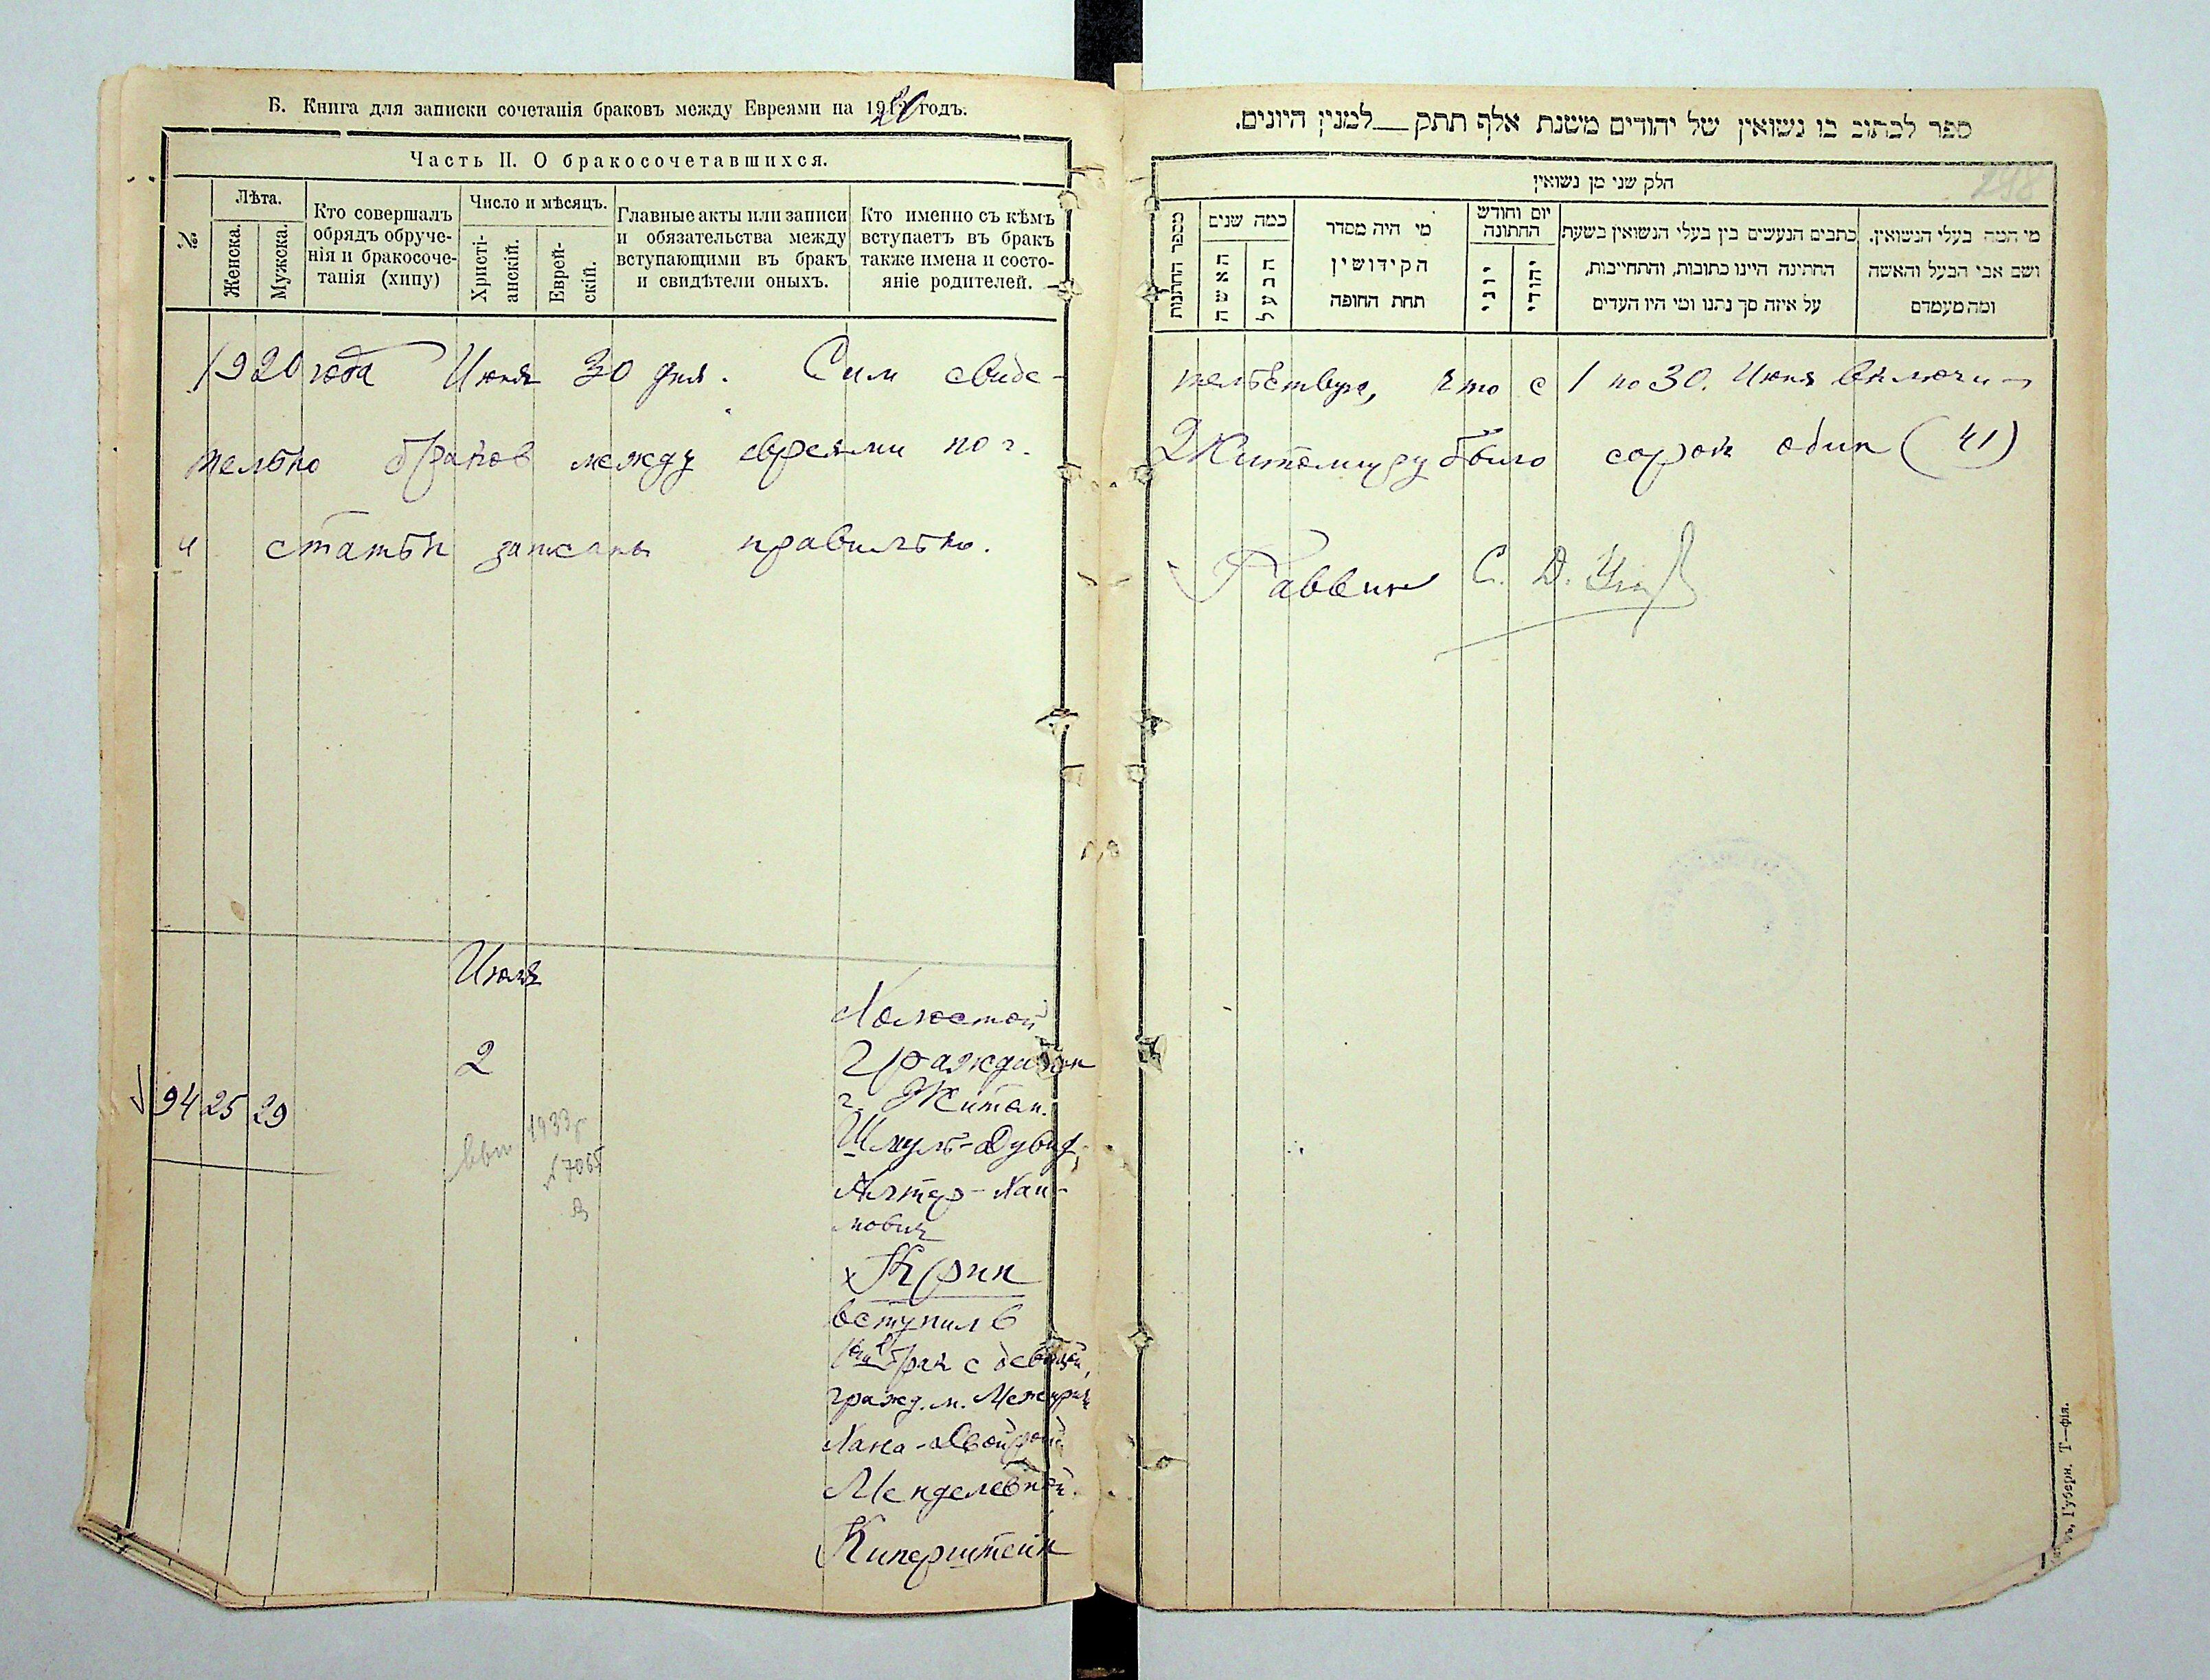 Б. Книга для записки сочетанія браковъ между Евреями на 1920 годъ.
Часть II. О бракосочетавшихся.
№
Лѣта.
Женска.
Мужска.
Кто совершалъ
обрядъ обруче-
нія и бракосоче-
танія (хипу)
Число и мѣсяцъ.
Христі-
анскій.
Еврей-
скій.
Главные акты или записи
и обязательства между
вступающими въ бракъ
и свидѣтели оныхъ.
Кто именно съ кѣмъ
вступаетъ въ бракъ
также имена и состо-
яніе родителей.
1920 года Июня 30 дня. Сим свиде-
тельно браков между евреями по г.
и статьи записаны правильно.
Июля
2
94 25 29
1933 г
Холостой
гражданин
г. Житом.
Шмуль-Дувид
Алтер-Хаи-
мович
Крик
вступил в
1ый брак с девицей,
гражд. м. Межирич
Хана-Двойрой
Менделевной
Киперштейн
ספר לכתוב בו נשואין של יהודים משנת אלף תתק __ למנין היונים.
298
חלק שני מן נשואין
מספר החתנות
כמה שנים
האשה
הבעל
מי היה מסדר
הקידושין
תחת החופה
יום וחודש
החתונה
יוני
יהודי
כתבים הנעשים בין בעלי הנשואין בשעת
החתינה היינו כתובות, והתחייבות,
על איזה סך נתנו ומי היו העדים
מי המה בעלי הנשואין.
ושם אבי הבעל והאשה
ומה מעמדם
тельствую, что с 1 по 30. Июня включи-
Житомиру было сорок один (41)
Раввин С. Д.
Губерн. Т—фія.